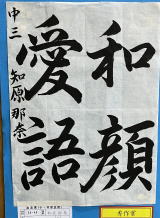 和顔
愛語
中三 知原那奈
秀作賞